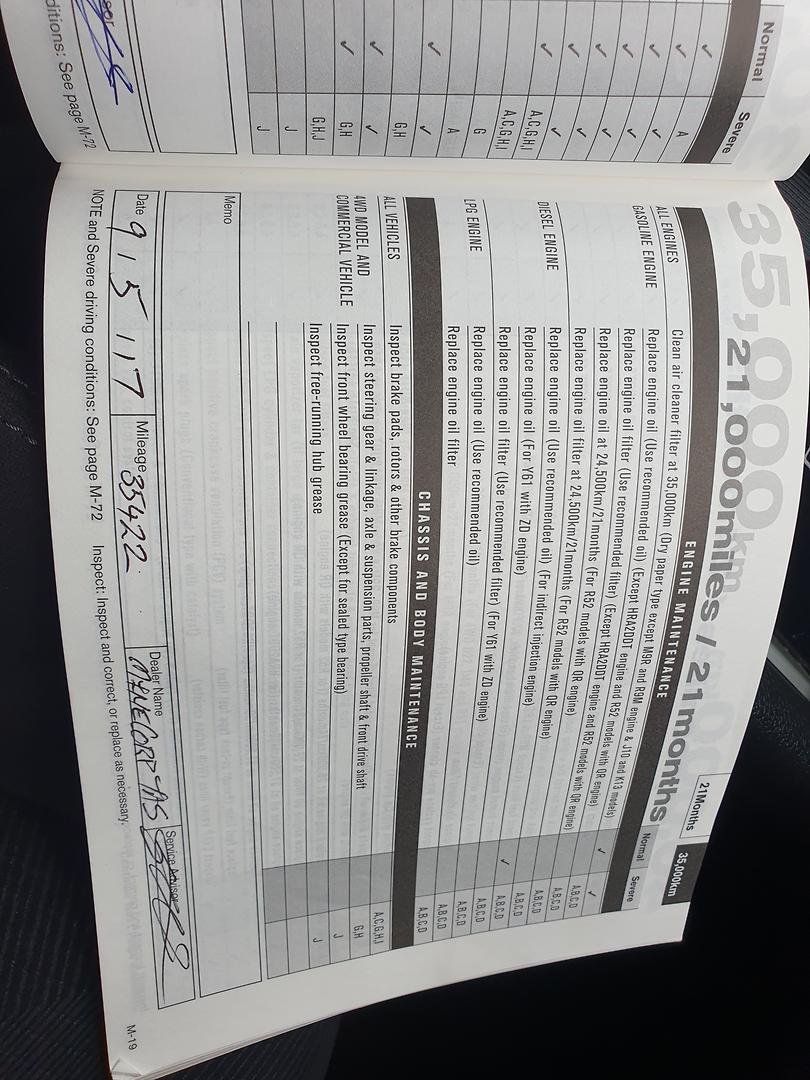 Normal
Severe
✓
✓ A
✓ ✓
✓ ✓
✓ ✓
✓ ✓
✓ ✓
A,C,G,H,I
A,C,G,H,I
G
A
✓ ✓
G,H
✓ ✓
✓ G,H
G,H,J
J
J
ditions: See page M-72
35,000km
21,000miles / 21months
21Months
35,000km
ENGINE MAINTENANCE
Normal
Severe
ALL ENGINES Clean air cleaner filter at 35,000km (Dry paper type except M9R and R9M engine & J10 and K13 models)
GASOLINE ENGINE Replace engine oil (Use recommended oil) (Except HRA2DDT engine and R52 models with QR engine) ✓ ✓
Replace engine oil filter (Use recommended filter) (Except HRA2DDT engine and R52 models with QR engine) A,B,C,D
Replace engine oil at 24,500km/21months (For R52 models with QR engine) A,B,C,D
Replace engine oil filter at 24,500km/21months (For R52 models with QR engine) A,B,C,D
DIESEL ENGINE Replace engine oil (Use recommended oil) (For indirect injection engine) A,B,C,D
Replace engine oil (For Y61 with ZD engine) ✓ A,B,C,D
Replace engine oil filter (Use recommended filter) (For Y61 with ZD engine) A,B,C,D
LPG ENGINE Replace engine oil (Use recommended oil) A,B,C,D
Replace engine oil filter A,B,C,D
A,B,C,D
CHASSIS AND BODY MAINTENANCE
ALL VEHICLES Inspect brake pads, rotors & other brake components A,C,G,H,I
Inspect steering gear & linkage, axle & suspension parts, propeller shaft & front drive shaft G,H
4WD MODEL AND COMMERCIAL VEHICLE Inspect front wheel bearing grease (Except for sealed type bearing) J
Inspect free-running hub grease J
Memo
Date 9 1 5 1 17 Mileage 35422 Dealer Name MYNECORP AS Service Advisor
NOTE and Severe driving conditions: See page M-72 Inspect: Inspect and correct, or replace as necessary.
M-19